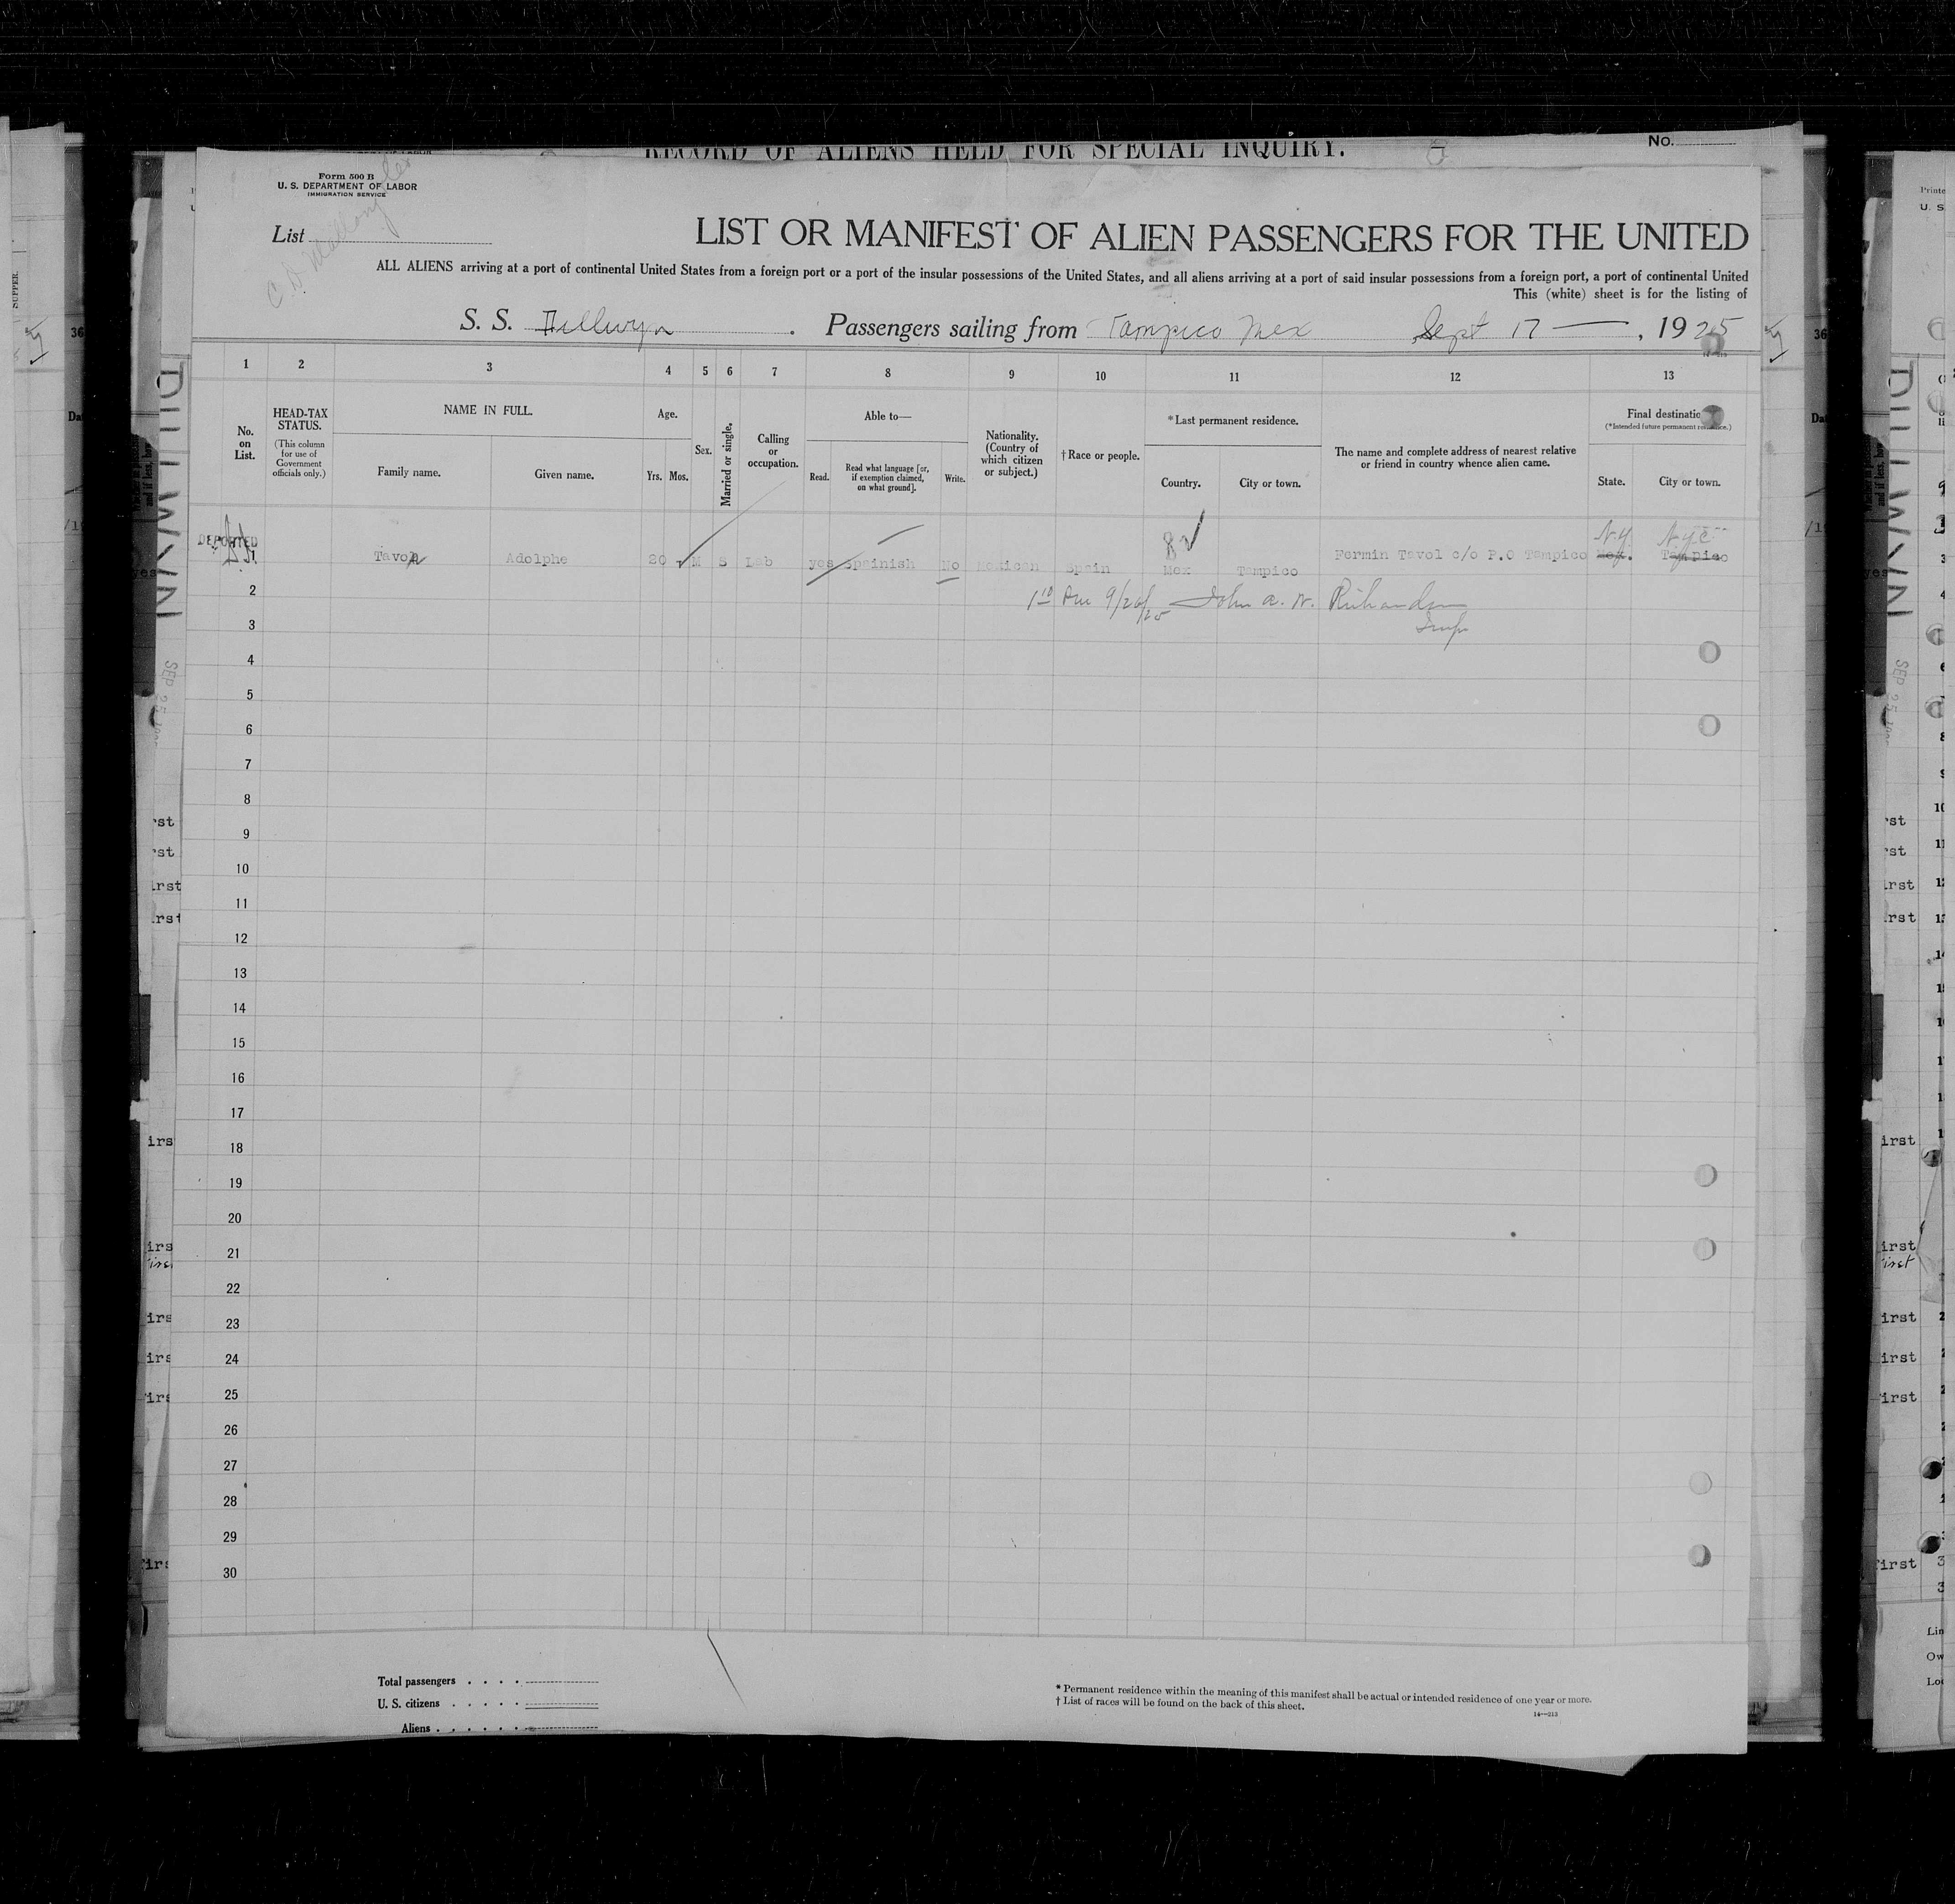 RECORD OF ALIENS HELD FOR SPECIAL INQUIRY.
No.
Form 500 B
U. S. DEPARTMENT OF LABOR
IMMIGRATION SERVICE
List
LIST OR MANIFEST OF ALIEN PASSENGERS FOR THE UNITED
ALL ALIENS arriving at a port of continental United States from a foreign port or a port of the insular possessions of the United States, and all aliens arriving at a port of said insular possessions from a foreign port, a port of continental United
This (white) sheet is for the listing of
S. S. Dillwyn . Passengers sailing from Tampico Mex Sept 17 , 1925
1 2 3 4 5 6 7 8 9 10 11 12 13
No. on List.
HEAD-TAX STATUS.
(This column for use of Government officials only.)
NAME IN FULL.
Family name.
Given name.
Age.
Yrs. Mos.
Sex.
Married or single.
Calling or occupation.
Able to—
Read.
Read what language [or, if exemption claimed, on what ground].
Write.
Nationality. (Country of which citizen or subject.)
† Race or people.
*Last permanent residence.
Country.
City or town.
The name and complete address of nearest relative or friend in country whence alien came.
Final destination
(*Intended future permanent residence.)
State.
City or town.
N.Y. N.Y.C.
DEPORTED
1 Tavol Adolphe 20 M S Lab yes Spainish No Mexican Spain Mex Tampico Fermin Tavol c/o P.O Tampico Mex. Tampico
9/26/25 John A. W. Richardson
Insp
2
3
4
5
6
7
8
9
10
11
12
13
14
15
16
17
18
19
20
21
22
23
24
25
26
27
28
29
30
Total passengers
U. S. citizens
Aliens
* Permanent residence within the meaning of this manifest shall be actual or intended residence of one year or more.
† List of races will be found on the back of this sheet.
14—213
DILLWYN
SEP 25